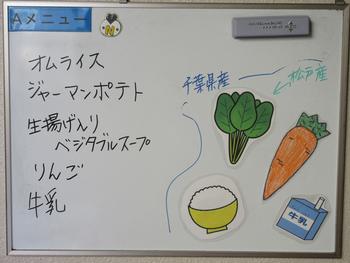 Aメニュー
N
オムライス
ジャーマンポテト
生揚げ入り
ベジタブルスープ
りんご
牛乳
千葉県産
松戸産
牛乳